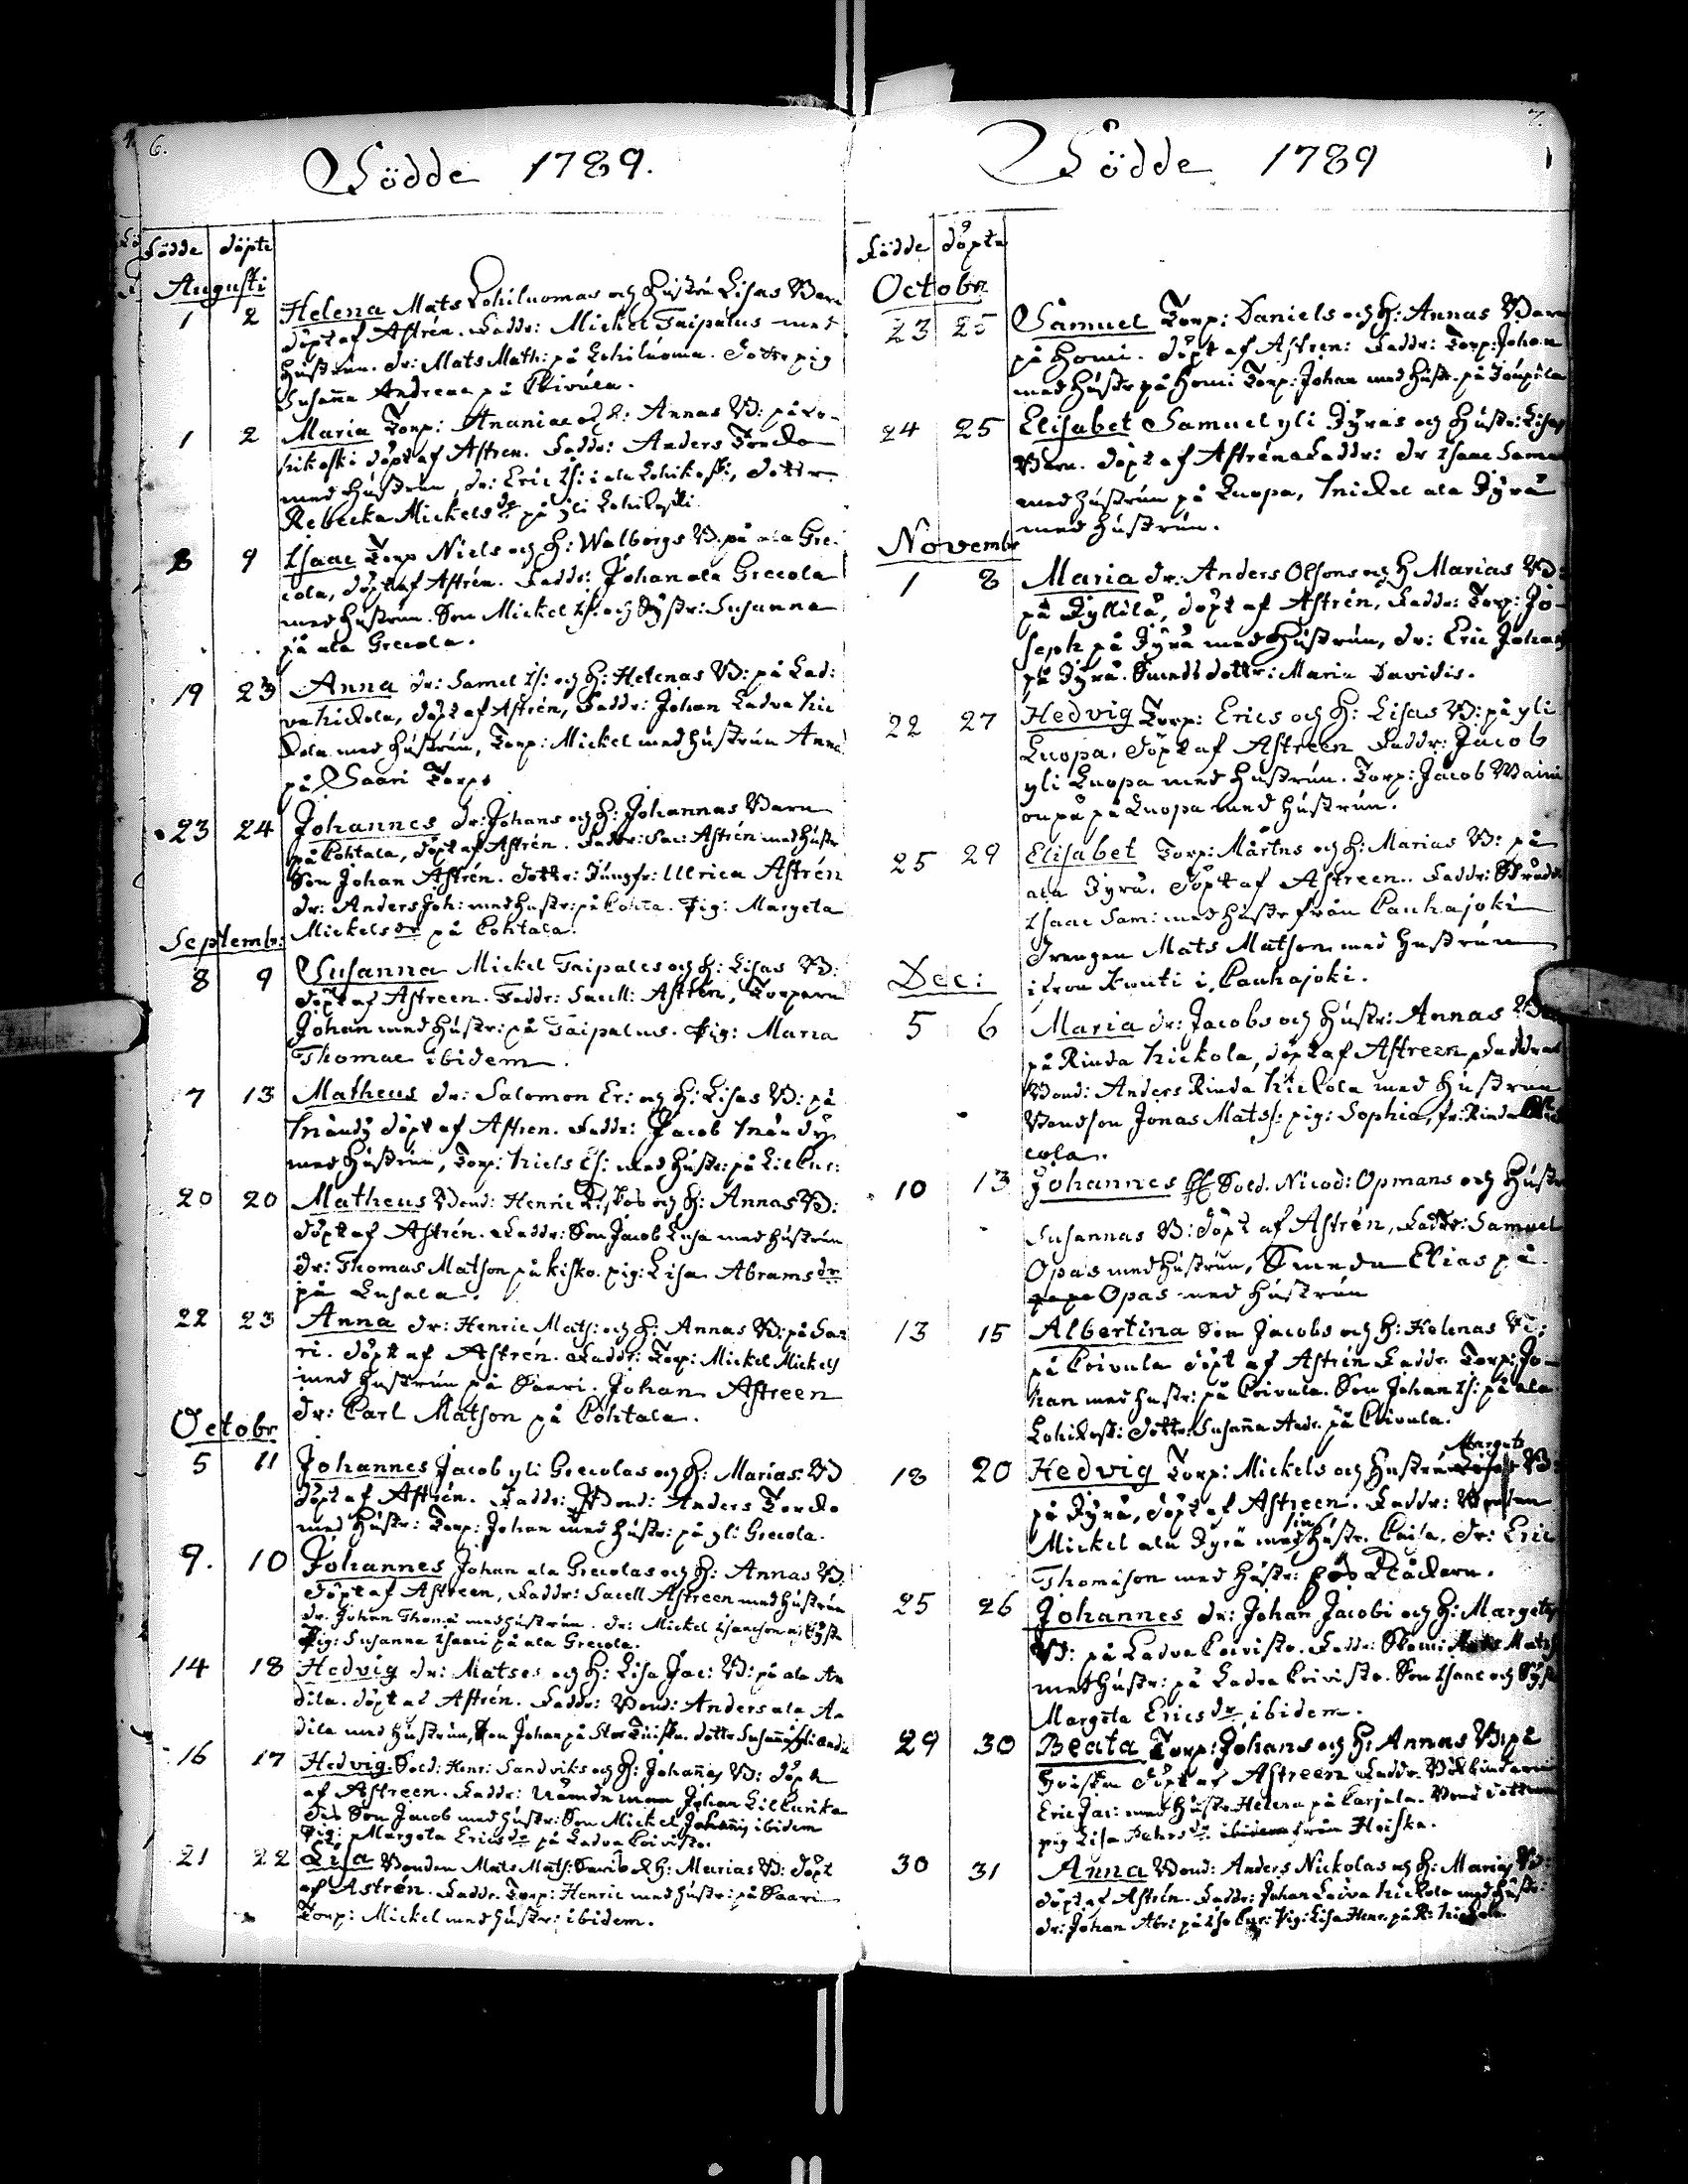 6.
Födde 1789.
Födde döpte
Augusti
1 2 Helena Mats Lohiluomas och Hustru Lisas Barn
döpt af Astrén. Faddr: Mickel Taipalus med
hustrun. dr: Mats Math: på Lohiluoma. Dottr pig
Susanna Andreae på Koivula.
1 2 Maria Torp: Ananiae och h: Annas B: på Lo-
hikoski döpt af Astren. Faddr: Anders Torcko
med hústrun, dr: Eric Is: i ala Lohikoski, dottr
Rebecka Mickels dr på yli Lohikoski
8 9 Isaac Torp Niels och H: Walborgs B. på ala Gre-
cola, döpt af Astrén. Faddr: Johan ala Grecola
med hustrun. Son Mickel Is: och Systr: Susanna
på ala Grecola.
19 23 Anna dr: Samel Is: och H: Helenas B: på Lad:
va hickola, döpt af Astrén, Faddr: Johan Ladva hic
kola med hústrún, Torp: Mickel med hústrún Anna
på Saari Torp
23 24 Johannes dr: Johans och H: Johannas Barn
på Kohtala, döpt af Astrén. Faddr: Sac: Astrén med hústr
Son Johan Astrén. Dottr: Jungfr: Ulrica Astrén
dr: Anders Joh: med hustr: på Kohta. Pig: Margeta
Mickels dr på Kohtala.
Septembr:
8 9 Susanna Mickel Taipales och H: Lisas B:
döpt af Astreen. Faddr: Sacell: Astrén, Torparn
Johan med hústr: på Taipalus. Pig: Maria
Thomae ibidem.
7 13 Matheus dr: Salomon Er: och H: Lisas B: på
Mändy döpt af Astren. Faddr: Jacob Mändy
med hústrún, Torp: Niels Is: med hústr: på
20 20 Matheus Bond: Henric Kiskos och H: Annas B:
döpt af Astrén. Faddr: Son Jacob Lusa med hústrún
dr: Thomas Matson på Kisko. pig: Lisa Abrams dr
på Lusala.
22 23 Anna dr: Henric Mats: och H: Annas B: på Saa
ri. döpt af Astrén. Faddr: Torp: Mickel Mickels
med hustrún på Saari. Johan Astreen
dr: Carl Matson på Kohtala.
Octobr
5 11 Johannes Jacob yli Grecolas och H: Marias: B
döpt af Astrén. Faddr: Bond: Anders Torcko
med hústr: Torp: Johan med hústr: på yli Grecola.
9. 10 Johannes Johan ala Grecolas och H: Annas B:
döpt af Astreen, Faddr: Sacell Astreen med hústrún
dr. Johan Thomæ med hústrún. dr: Mickel Isaacson
Pig: Susanna Isaaci på ala Grecola.
14 18 Hedvig dr: Matses och H: Lisa Jac: B: på ala An
dila. döpt af Astrén. Faddr: Bond: Anders ala An
dila med hústrún, Son Johan på dottr Susanna yli Andi
16 17 Hedvig. Sold: Henr: Sandviks och H: Johannas B: döpt
af Astreen. Faddr: Nämdeman Johan
des Son Jacob med hústr: Son Mickel Johannis ibidem
Pig: Margeta Erics dr på Ladva Koivisto.
21 22 Lisa Bonden Mats Mats: Saris och H: Marias B: döpt
af Astrén. Faddr. Torp: Henric med hústr: på Saari
Torp: Mickel med hústr: ibidem.
7.
Födde 1789
Födde döpte
Octobr
23 25 Samuel Torp: Daniels och H: Annas Barn
på Homi. döpt af Astren: Faddr: Torp: Johan
med hústr på Homi Torp: Johan med hústr. på Joupila
24 25 Elisabet Samuel yli Jyräs och hústr: Lisas
Barn. döpt af Astrén Faddr: dr Isaac Samu
med hústrún på Luopa, Mickel ala Jyrä
med hústrún.
Novembr
1 8 Maria dr: Anders Olsons och H Marias B:
på Jyllilä, döpt af Astrén, Faddr: Torp: Jo-
seph på Jyrä med Hústrún, dr: Eric Johans
på Jyrä. dottr: Maria Davidis.
22 27 Hedvig Torp: Erics och H: Lisas B: på yli
Luopa. döpt af Astreen Faddr: Jacob
yli Luopa med hústrún. Torp: Jacob Waini
onpä på Luopa med hústrún.
25 29 Elisabet Torp: Mårtns och H: Marias B: på
ala Jyrä. döpt af Astreen. Faddr:
Isaac Sam: med hústr från Cauhajoki
Drengen Mats Matson med hustrún
ifrån i Cauhajoki.
Dec:
5 6 Maria dr: Jacobs och hústr: Annas B
på Rinda hickola, döpt af Astreen Faddrar
Bond: Anders Rinda hickola med hústrún
Bondson Jonas Mats: pig: Sophia, fr: Rinda
cola.
10 13 Johannes Sold. Nicod: Opmans och hústr
Susannas B: döpt af Astrén, Faddr: Samuel
Opas med hústrún, Smeden Elias på
Opas med hústrún
13 15 Albertina Son Jacobs och H: Helenas B:
på Koivula döpt af Astrén Faddr. Torp: Jo-
han med hustr: på Koivula. Son Johan Is: på ala
Lohikosk: dottr: Susanna Andr. på Koivula.
Margets
18 20 Hedvig Torp: Mickels och hustru B:
på Jyrä, döpt af Astreen. Faddr: Bonden
Mickel ala Jyrä med sin hústr. Caisa. dr: Eric
Thomson med hústr:
25 26 Johannes dr: Johan Jacobi och H: Margetas
B: på Ladva Koivisto. Faddr: Mats
med hústr: på Ladva Koivisto. Son Isaac och Syst
Margeta Erics dr ibidem.
29 30 Beata Torp: Johans och H: Annas B: på
döpt af Astreen Faddr. Bokbindaren
Eric Jac: med hústr Helena på Karjala. Bond dottren
pig Lisa ibidem från Hoiska.
30 31 Anna Bond: Anders Nickolas och H: Marias B:
döpt af Astrén. Faddr: Johan hickola med hústr:
dr: Johan Abr: på Pig: Lisa Henr. på R: hickola.